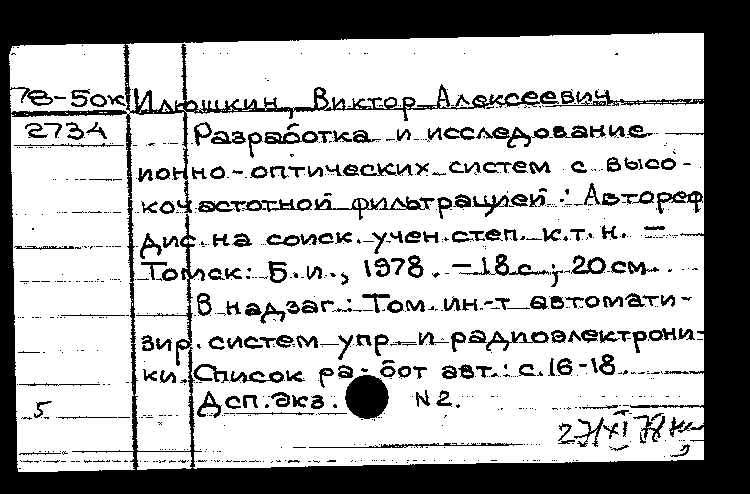 78-5ок Илюшкин, Виктор Алексеевич.
2734 Разработка и исследование
ионно-оптических систем с высо-
кочастотной фильтрацией : Автореф
дис. на соиск. учен. степ. к.т.н. —
Томск: Б. и., 1978. — 18 с ; 20 см.
В надзаг.: Том. ин-т автомати-
зир. систем упр. и радиоэлектрони-
ки. Список работ авт.: с. 16-18.
Дсп. Экз. N 2.
5
27/XI 78